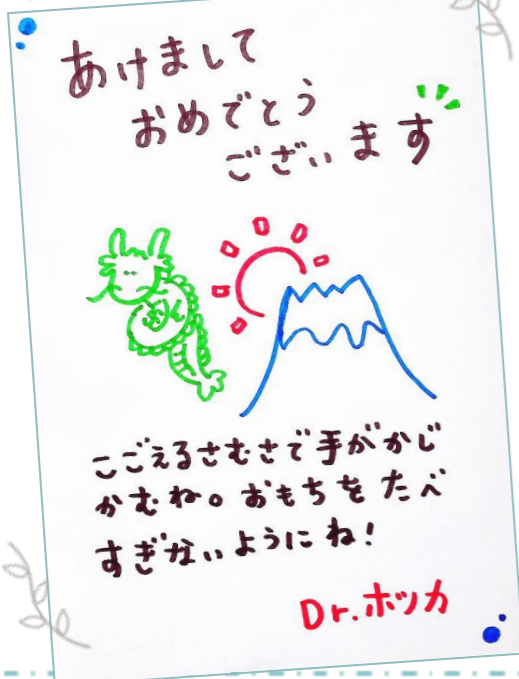 あけまして
おめでとう
ございます
こごえるさむさで手がかじ
かむね。おもちをたべ
すぎないようにね!
Dr.ホッカ